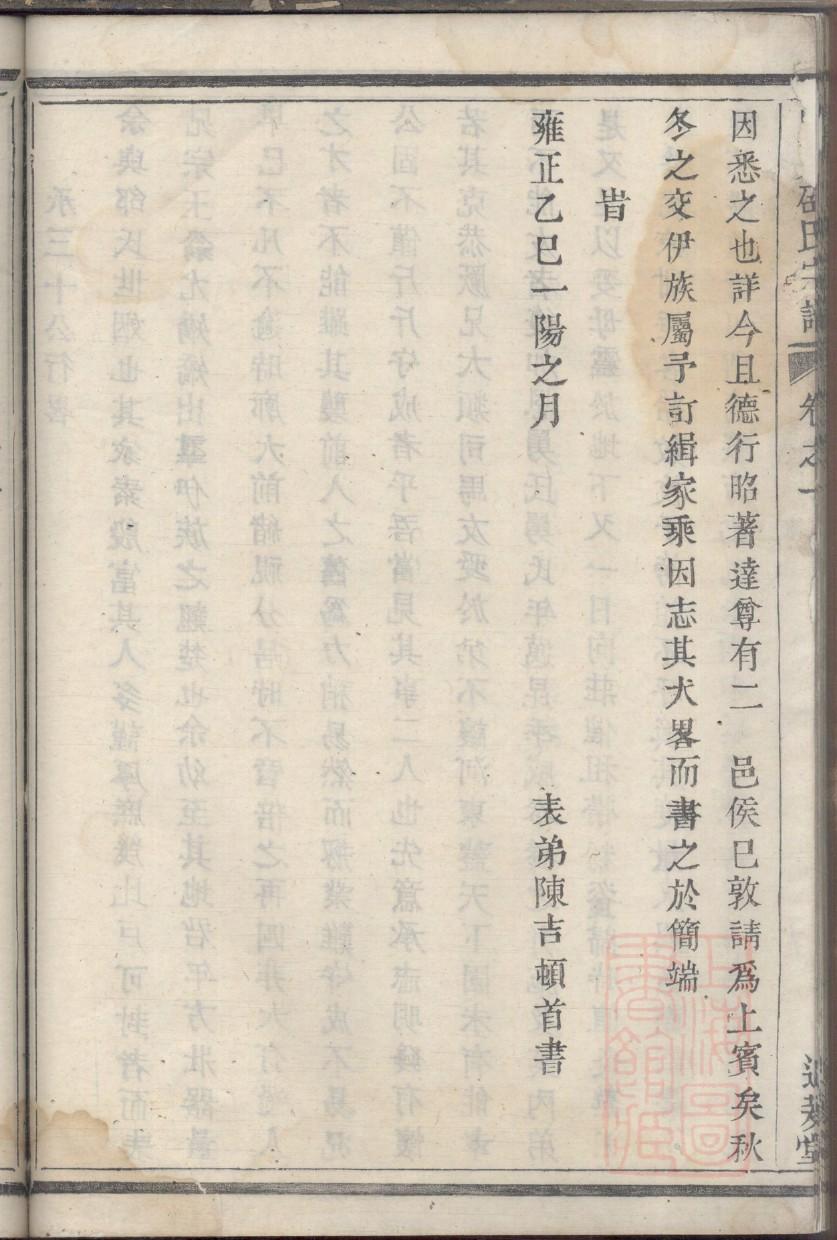 邵氏宗譜 卷之一
因悉之也詳今且德行昭著達尊有二 邑侯已敦請爲上賓矣秋
冬之交伊族屬予訂緝家乘因志其大畧而書之於簡端
旹
雍正乙巳一陽之月 表弟陳吉頓首書
上海圖書館藏